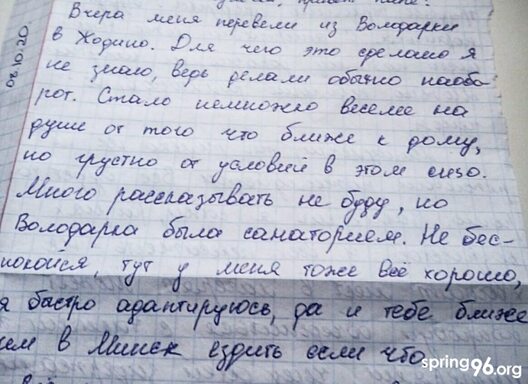 мама, привет папе!
Вчера меня перевели из Володарки
в Жодино. Для чего это сделано я
не знаю, ведь делали обычно наобо-
рот. Стало немножко веселее на
душе от того что ближе к дому,
но грустно от условий в этом сизо.
Много рассказывать не буду, но
Володарка была санаторием. Не бес-
покойся, тут у меня тоже всё хорошо,
я быстро адаптируюсь, да и тебе ближе
чем в Минск ездить если что
08.10.20
spring96.org